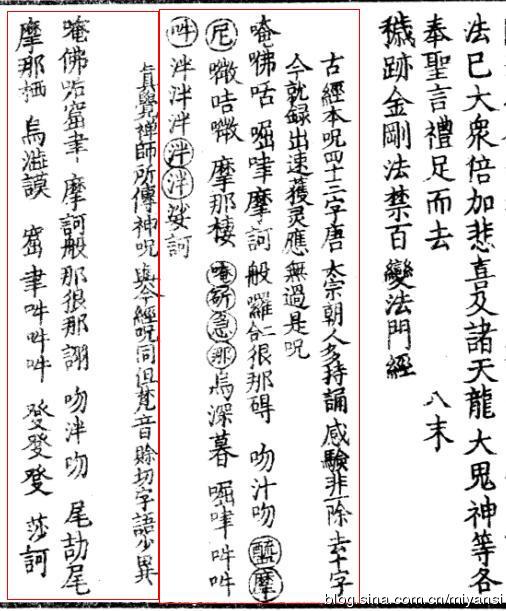 法已大衆倍加悲喜及諸天龍大鬼神等各
奉聖言禮足而去
穢跡金剛法禁百變法門經 八末
古經本呪四十三字唐太宗朝人多持誦感驗非一除去十字
今就録出速獲灵應無過是呪
唵 咈咶 啒㖶摩訶 般囉 很那㝵 吻汁吻 醯摩
尼 㘑咭㘑 摩那棲 唵斫急那 烏深暮 啒㖶吽吽
吽 泮泮泮泮泮娑訶
真覺禪師所傳神呪與今經呪同但梵音賖切字語少異
唵佛咶窟聿 摩訶般那很那詡 吻泮吻 尾劼尾
摩那栖 烏澁謨 窟聿吽吽吽 發發發 莎訶
blog.sina.com.cn/miyansi